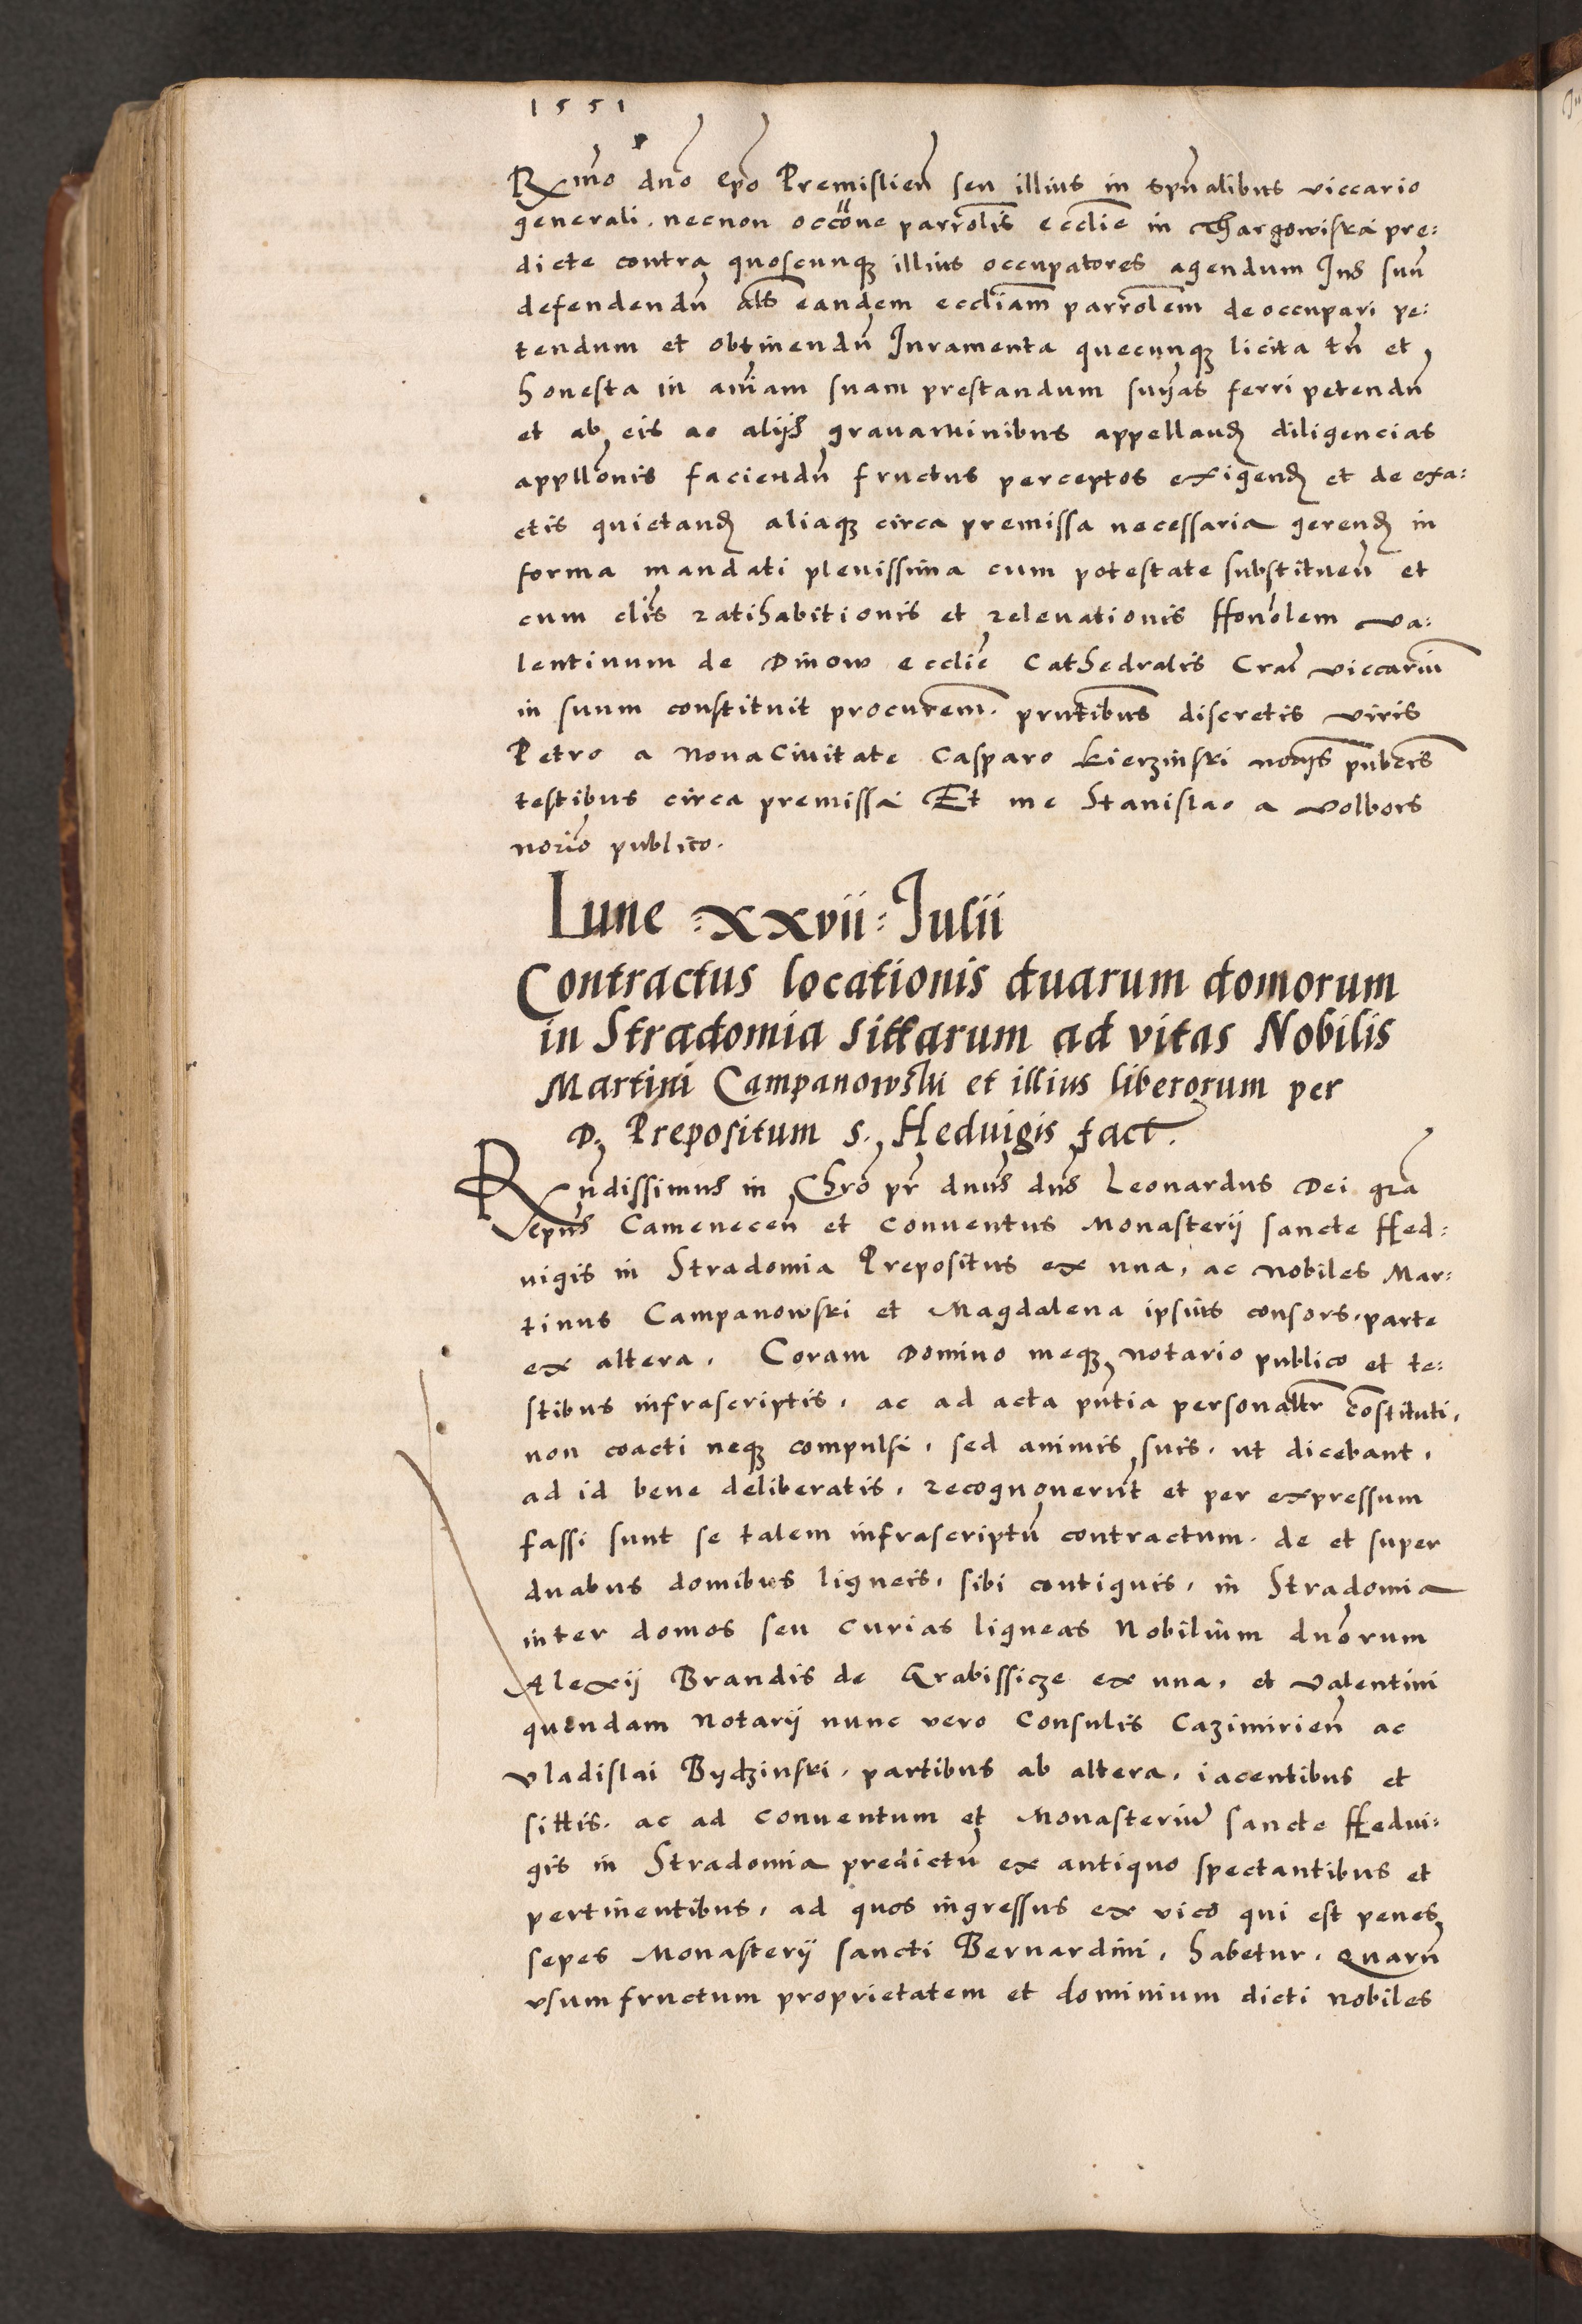 1551
Rmo dno epo Premislien seu illius in spualibus viccario
generali. necnon occone parrolis ecclie in Thargowiska pre:
dicte contra quoscunq illius occupatores agendum Ius suu
defendendu als eandem eccliam parrolem de occupari pe:
tendum et obtinendu Iuramenta quecunq licita tn et
honesta in aniam suam prestandum snias ferri petendu
et ab eis ac alijs grauaminibus appelland diligencias
appllonis faciendu fructus perceptos exigend et de exa:
ctis quietand aliaq circa premissa necessaria gerend in
forma mandati plenissima cum potestate substituen et
cum clis ratihabitionis et releuationis Honolem Va:
lentinum de Dinow ecclie Cathedralis Crac viccariu
in suum constituit procurem. pntibus discretis viris
Petro a Nova Ciuitate Casparo Kierzinski notariis publicis
testibus circa premissa Et me Stanislao a Volbors
norio publico.
Lune :XXvii: Julii
Contractus locationis duarum domorum
in Stradomia sittarum ad vitas Nobilis
Martini Campanowski et illius liberorum per
D. Prepositum S. Heduigis fact.
Rndissimus in Chro pr dnus dns Leonardus Dei gra
epus Camenecen et Conuentus Monasterij sancte Hed:
uigis in Stradomia Prepositus ex una, ac nobiles Mar:
tinus Campanowski et Magdalena ipsius consors, parte
ex altera. Coram Domino meq notario publico et te:
stibus infrascriptis, ac ad acta pntia personaltr constituti,
non coacti neq compulsi, sed animis suis, ut dicebant,
ad id bene deliberatis, recognouerunt et per expressum
fassi sunt se talem infrascriptu contractum. de et super
duabus domibus ligneis, sibi contiguis, in Stradomia
inter domos seu Curias ligneas Nobilium dnorum
Alexij Brandis de Grabissicze ex una, et Valentini
quondam Notarij nunc vero Consulis Cazimirien ac
Vladislai Bydzinski, partibus ab altera, iacentibus et
sittis. ac ad Conuentum et Monasteriu sancte Hedui:
gis in Stradomia predictu ex antiquo spectantibus et
pertinentibus, ad quos ingressus ex vico qui est penes
sepes Monasterij sancti Bernardini, habetur. Quaru
vsumfructum proprietatem et dominium dicti nobiles